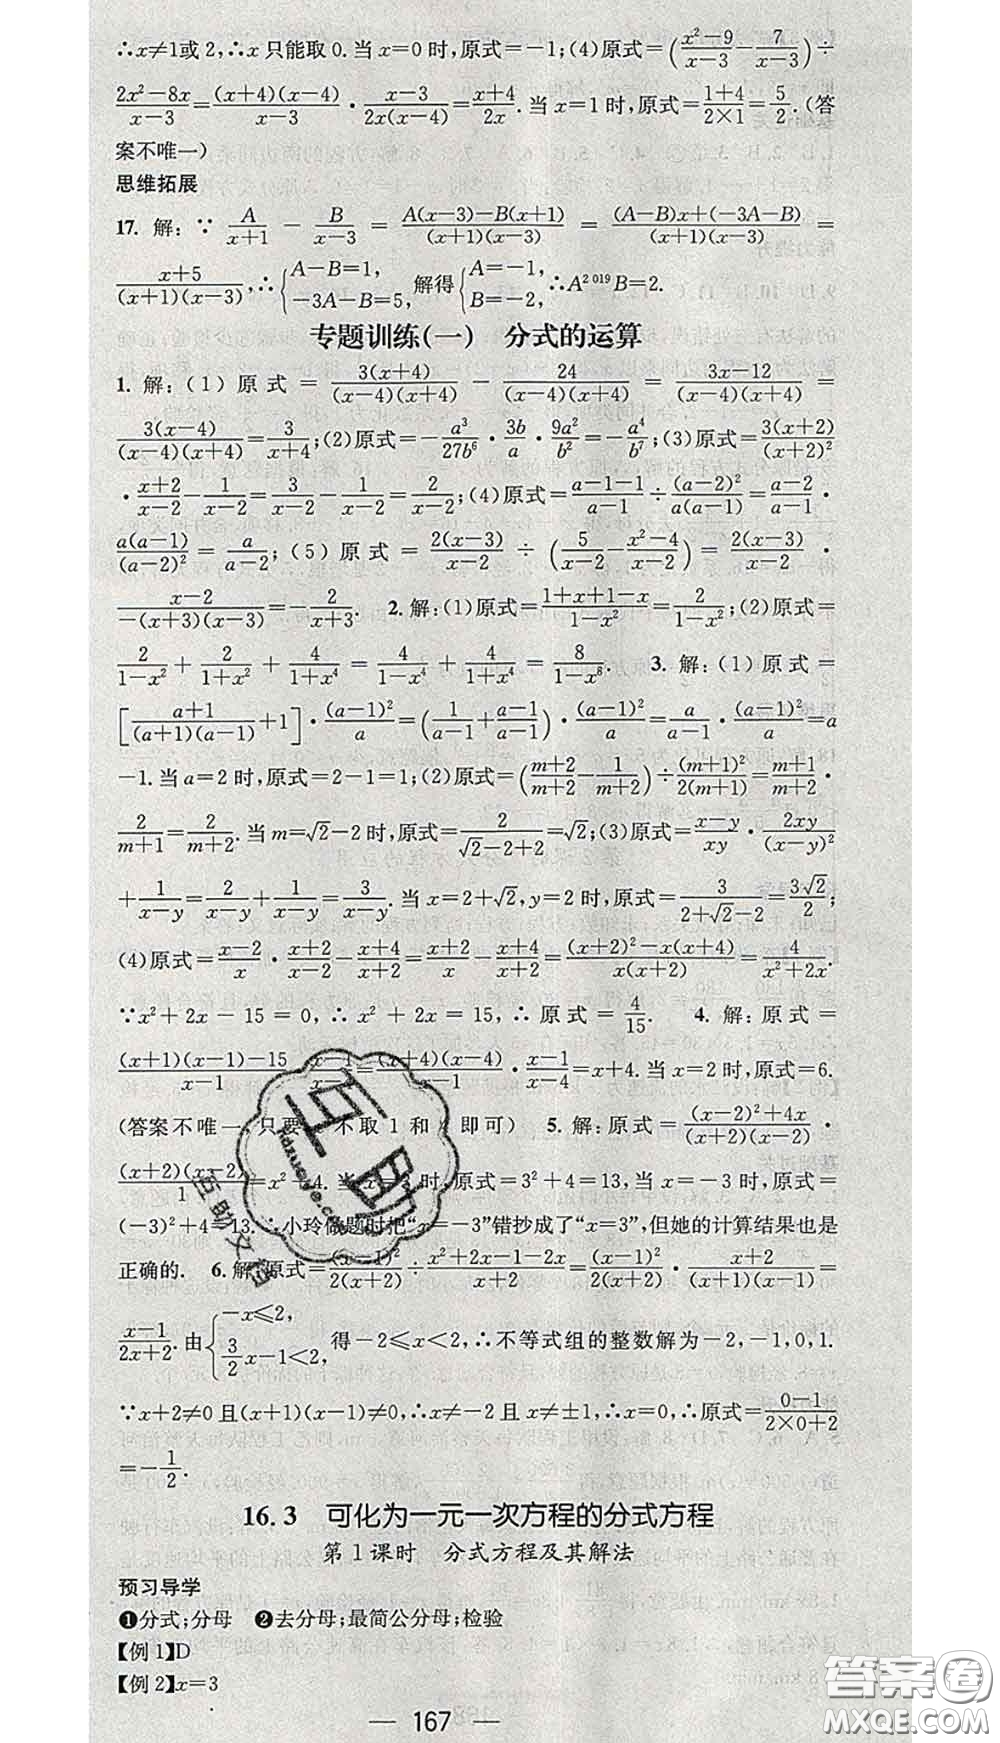 ∴x≠1或2,∴x只能取0.当x=0时,原式=-1;(4)原式=(\frac{x²-9}{x-3}-\frac{7}{x-3})÷
\frac{2x²-8x}{x-3}=\frac{(x+4)(x-4)}{x-3}·\frac{x-3}{2x(x-4)}=\frac{x+4}{2x}.当x=1时,原式=\frac{1+4}{2×1}=\frac{5}{2}.(答
案不唯一)
思维拓展
17. 解:∵\frac{A}{x+1}-\frac{B}{x-3}=\frac{A(x-3)-B(x+1)}{(x+1)(x-3)}=\frac{(A-B)x+(-3A-B)}{(x+1)(x-3)}=
\frac{x+5}{(x+1)(x-3)},∴{A-B=1, -3A-B=5,解得{A=-1, B=-2,∴A^{2019}B=2.
专题训练(一) 分式的运算
1. 解:(1)原式=\frac{3(x+4)}{(x-4)(x+4)}-\frac{24}{(x-4)(x+4)}=\frac{3x-12}{(x-4)(x+4)}=
\frac{3(x-4)}{(x-4)(x+4)}=\frac{3}{x+4};(2)原式=-\frac{a³}{27b⁶}·\frac{3b}{a}·\frac{9a²}{b²}=-\frac{a⁴}{b⁷};(3)原式=\frac{3(x+2)}{(x+2)²}
·\frac{x+2}{x-2}-\frac{1}{x-2}=\frac{3}{x-2}-\frac{1}{x-2}=\frac{2}{x-2};(4)原式=\frac{a-1-1}{a-1}÷\frac{(a-2)²}{a(a-1)}=\frac{a-2}{a-1}·
\frac{a(a-1)}{(a-2)²}=\frac{a}{a-2};(5)原式=\frac{2(x-3)}{x-2}÷(\frac{5}{x-2}-\frac{x²-4}{x-2})=\frac{2(x-3)}{x-2}·
\frac{x-2}{-(x+3)(x-3)}=-\frac{2}{x+3}. 2.解:(1)原式=\frac{1+x+1-x}{1-x²}=\frac{2}{1-x²};(2)原式=
\frac{2}{1-x²}+\frac{2}{1+x²}+\frac{4}{1+x⁴}=\frac{4}{1-x⁴}+\frac{4}{1+x⁴}=\frac{8}{1-x⁸}. 3. 解:(1)原式=
[\frac{a+1}{(a+1)(a-1)}+1]·\frac{(a-1)²}{a}=(\frac{1}{a-1}+\frac{a-1}{a-1})·\frac{(a-1)²}{a}=\frac{a}{a-1}·\frac{(a-1)²}{a}=a
-1.当a=2时,原式=2-1=1;(2)原式=(\frac{m+2}{m+2}-\frac{1}{m+2})÷\frac{(m+1)²}{2(m+1)}=\frac{m+1}{m+2}·
\frac{2}{m+1}=\frac{2}{m+2}.当m=√2-2时,原式=\frac{2}{√2-2+2}=√2;(3)原式=\frac{x-y}{xy}·\frac{2xy}{(x-y)²}
+\frac{1}{x-y}=\frac{2}{x-y}+\frac{1}{x-y}=\frac{3}{x-y}.当x=2+√2,y=2时,原式=\frac{3}{2+√2-2}=\frac{3√2}{2};
(4)原式=\frac{x-2}{x}·\frac{x+2}{x-2}-\frac{x+4}{x+2}=\frac{x+2}{x}-\frac{x+4}{x+2}=\frac{(x+2)²-x(x+4)}{x(x+2)}=\frac{4}{x²+2x}.
∵x²+2x-15=0,∴x²+2x=15,∴原式=\frac{4}{15}. 4. 解:原式=
\frac{(x+1)(x-1)-15}{x-1}·\frac{x-1}{x-4}=\frac{(x+4)(x-4)}{x-1}·\frac{x-1}{x-4}=x+4.当x=2时,原式=6.
(答案不唯一,只要 不取1和 即可) 5. 解:原式=\frac{(x-2)²+4x}{(x+2)(x-2)}·
\frac{(x+2)(x-2)}{1}=x²+4.当x= 时,原式=3²+4=13,当x=-3时,原式=
(-3)²+4=13.∴小玲做题时把“x=-3”错抄成了“x=3”,但她的计算结果也是
正确的. 6. 解:原式=\frac{(x-1)²}{2(x+2)}÷\frac{x²+2x-1-2x}{x+2}=\frac{(x-1)²}{2(x+2)}·\frac{x+2}{(x+1)(x-1)}=
\frac{x-1}{2x+2}.由{-x≤2, \frac{3}{2}x-1<2,得-2≤x<2,∴不等式组的整数解为-2,-1,0,1.
∵x+2≠0且(x+1)(x-1)≠0,∴x≠-2且x≠±1,∴x=0,∴原式=\frac{0-1}{2×0+2}
=-\frac{1}{2}.
16.3 可化为一元一次方程的分式方程
第1课时 分式方程及其解法
预习导学
❶分式;分母 ❷去分母;最简公分母;检验
【例1】D
【例2】x=3
— 167 —
互助
hdzuoye.com
互助文档
答案圈
MXQE.COM